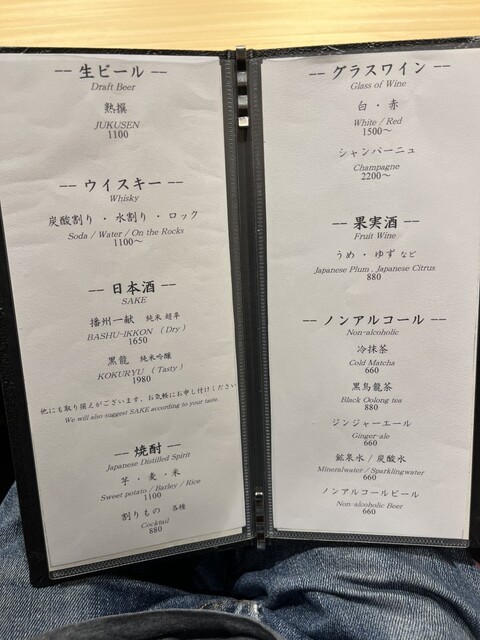 -- 生ビール --
Draft Beer
熟撰
JUKUSEN
1100
-- ウイスキー --
Whisky
炭酸割り ・ 水割り ・ ロック
Soda / Water / On the Rocks
1100～
-- 日本酒 --
SAKE
播州一献 純米 超辛
BASHU-IKKON ( Dry )
1650
黒龍 純米吟醸
KOKURYU ( Tasty )
1980
他にも取り揃えがございます、お気軽にお申し付けください
We will also suggest SAKE according to your taste.
-- 焼酎 --
Japanese Distilled Spirit
芋 ・ 麦 ・ 米
Sweet potato / Barley / Rice
1100
割りもの 各種
Cocktail
880
-- グラスワイン --
Glass of Wine
白 ・ 赤
White / Red
1500～
シャンパーニュ
Champagne
2200～
-- 果実酒 --
Fruit Wine
うめ ・ ゆず など
Japanese Plum . Japanese Citrus
880
-- ノンアルコール --
Non-alcoholic
冷抹茶
Cold Matcha
660
黒烏龍茶
Black Oolong tea
880
ジンジャーエール
Ginger-ale
660
鉱泉水 / 炭酸水
Mineralwater / Sparklingwater
660
ノンアルコールビール
Non-alcoholic Beer
660